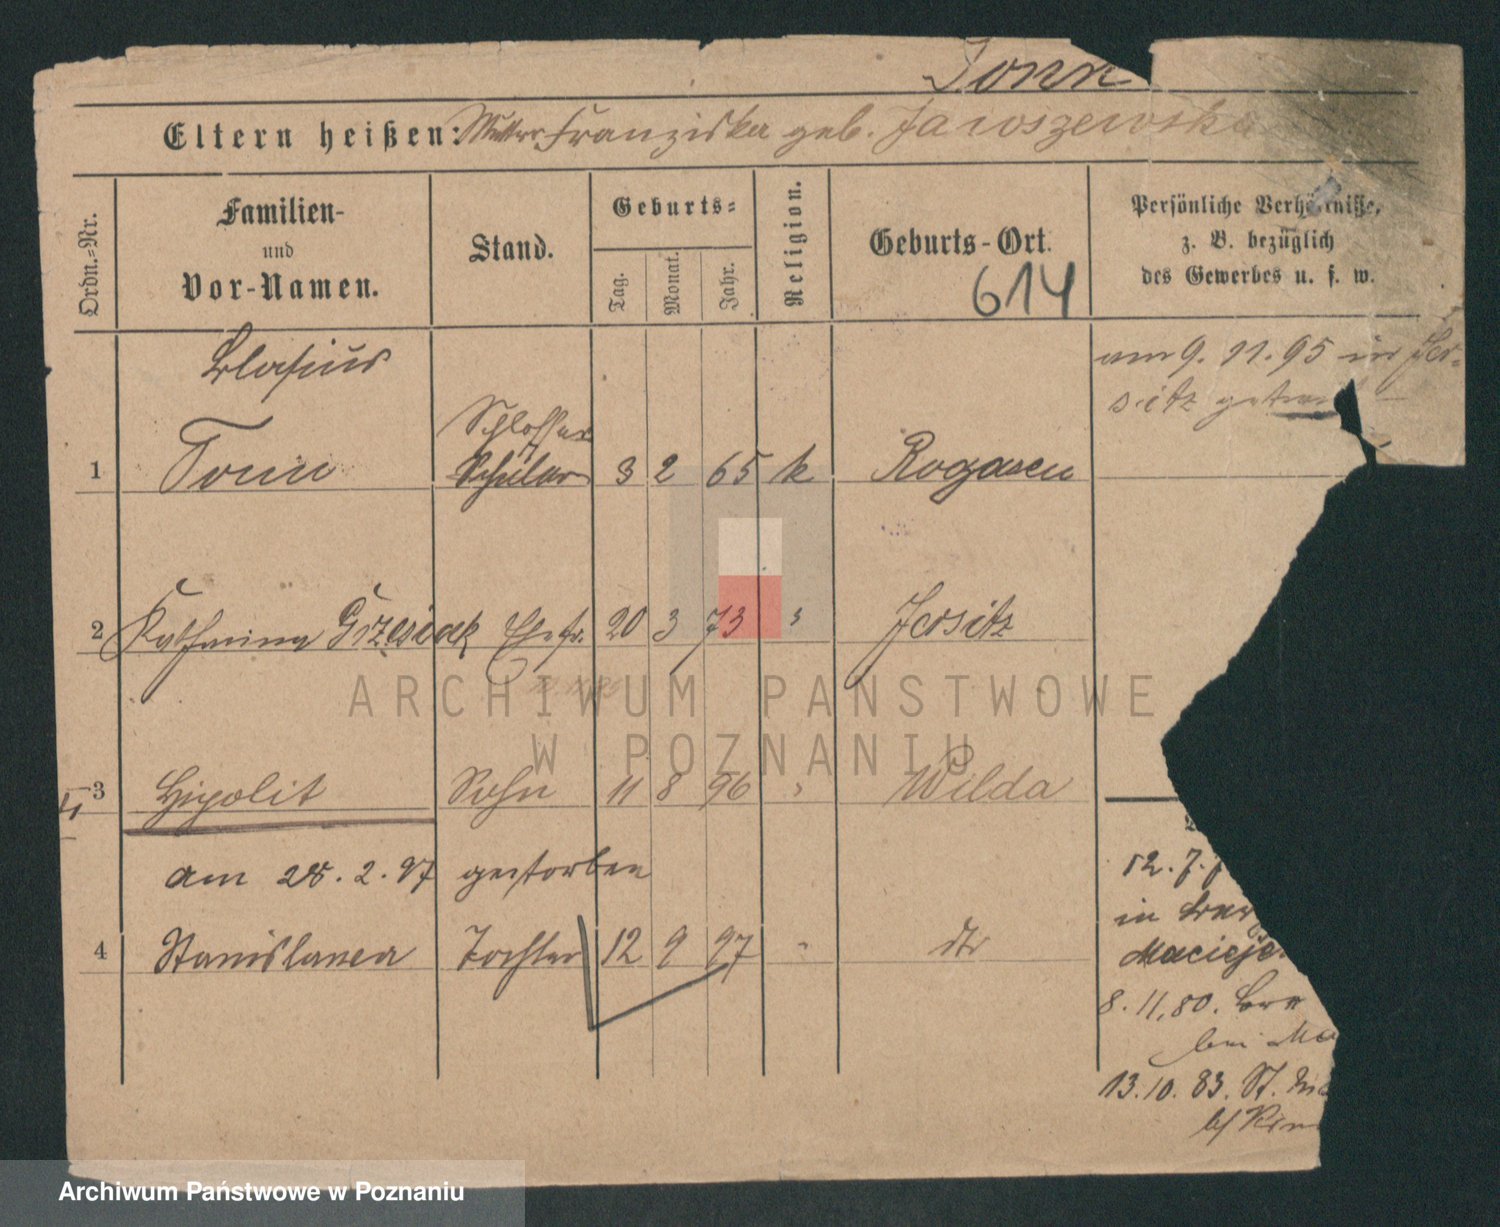 Tonn
Eltern heißen: Mutter Franziska geb. Jawoszewska
Ordn.-Nr.
Familien-
und
Vor-Namen.
Stand.
Geburts-
Tag.
Monat.
Jahr.
Religion.
Geburts-Ort.
614
Persönliche Verhältnisse,
z. B. bezüglich
des Gewerbes u. s. w.
Blasius
am 9. 11. 95 in Jer-
sitz getraut
Schlosser
1 Tonn Schüler 3 2 65 k Rogasen
2 Katharina Grzesiak Ehefr. 20 3 73 " Jersitz
3 Hipolit Sohn 11 8 96 " Wilda
am 28. 2. 97 gestorben
4 Stanislawa Tochter 12 9 97 " dto
12. 7.
in
Maciej
8. 11. 80.
bei Ma
13. 10. 83. St.
b/
ARCHIWUM PAŃSTWOWE
W POZNANIU
Archiwum Państwowe w Poznaniu